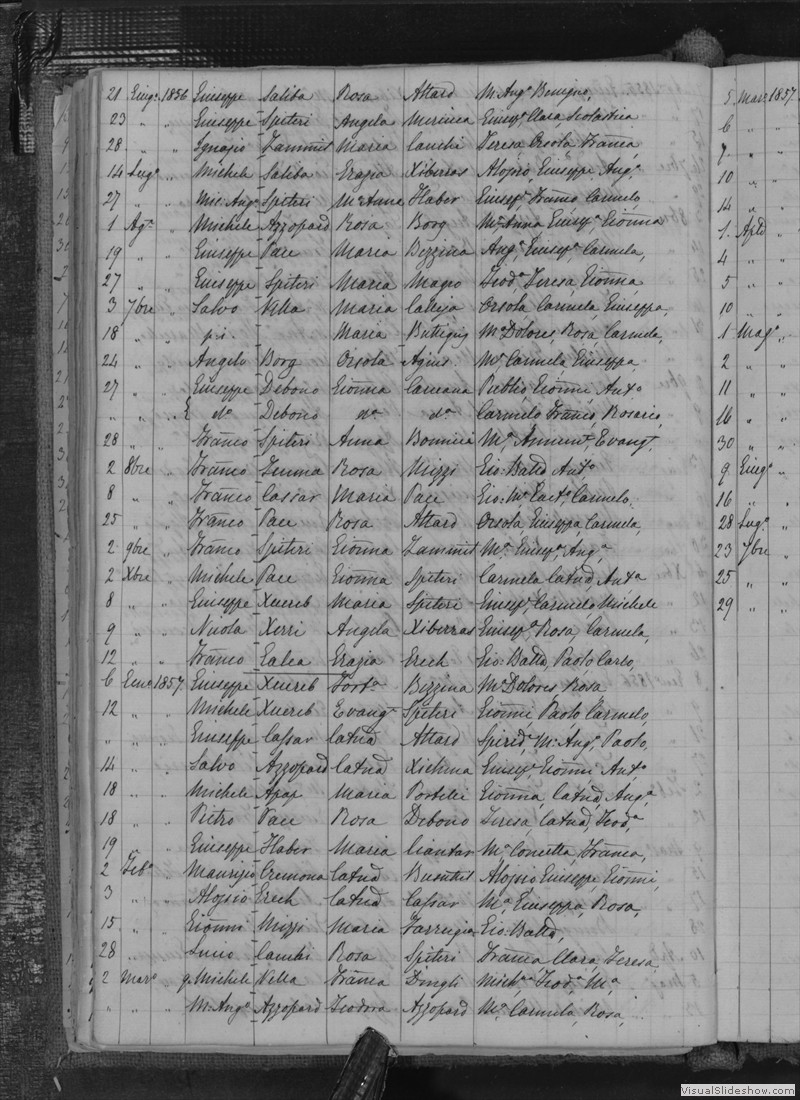 21 Giug.º 1856 Giuseppe Saliba Rosa Attard M.ª Ang.ª Benigna,
23 " " Giuseppe Spiteri Angela Giusep.ª Clara, Scolastica
28 " " Ignazio Zammit Maria Cauchi Teresa, Orsola, Franca,
14 Lug.º " Michele Saliba Grazia Xiberras Aloisio, Giuseppe, Ang.º
27 " " Mic: Ang.º Spiteri M.ª Anna Haber Giusep.ª Carmelo,
1 Ag.º " Michele Azzopard Rosa Borg M.ª Anna, Giusep.ª, Gionna
19 " " Giuseppe Pace Maria Bezzina Ang.ª, Giusep.ª Carmela,
27 " " Giuseppe Spiteri Maria Magro Teod.ª Teresa, Gionna
3 7bre " Salvo Vella Maria Calleja Orsola, Carmela, Giuseppa,
18 " " Maria Buttigieg M.ª Dolores, Rosa, Carmela,
24 " " Angelo Borg Orsola Agius M.ª Carmela, Giuseppa,
27 " " Giuseppe Debono Gionna Caruana Publio, Gionni, Ant.º
" " " E d.º Debono d.ª d.ª Carmelo, Franco, Rosario,
28 " " Franco Spiteri Anna Bonnici M.ª Annunt.ª, Evang.ª
2 8bre " Franco Rosa Mizzi Gio: Batta, Ant.º
8 " " Franco Cassar Maria Pace Gio: M.ª Gaet.º, Carmelo,
25 " " Franco Pace Rosa Attard Orsola, Giuseppa, Carmela,
2 9bre " Franco Spiteri Gionna Zammit M.ª Giusep.ª, Ang.ª
2 Xbre " Michele Pace Gionna Spiteri Carmela, Catna, Ant.ª
8 " " Giuseppe Xuereb Maria Spiteri Giusep.ª, Carmelo, Michele
9 " " Nicola Xerri Angela Xiberras Giusep.ª, Rosa, Carmela,
12 " " Franco Galea Grazia Grech Gio: Batta, Paolo, Carlo,
6 Gen.º 1857 Giuseppe Xuereb Fort.ª Bezzina M.ª Dolores, Rosa
12 " " Michele Xuereb Evang.ª Spiteri Gionni, Paolo, Carmelo,
" " " Giuseppe Cassar Catna Attard Spirid.ª, M: Ang.º, Paolo,
14 " " Salvo Azzopard Catna Xicluna Giusep.ª, Gionni, Ant.º
18 " " Michele Apap Maria Portelli Gionna, Catna, Ang.ª
18 " " Pietro Pace Rosa Debono Teresa, Catna, Teod.ª
19 " " Giuseppe Haber Maria Ciantar M.ª Concetta, Franca,
2 Feb.º " Maurizio Cremona Catna Aloisio, Giuseppe, Gionni,
3 " " Aloisio Grech Catna Cassar M.ª, Giuseppa, Rosa,
15 " " Gionni Mizzi Maria Farrugia Gio: Batta,
28 " " Lucio Cauchi Rosa Spiteri Franca, Clara, Teresa,
2 Marº " q. Michele Vella Franca Dingli Mich.ª, Teod.ª, M.ª
" " " M: Ang.º Azzopard Teodora Azzopard M.ª Carmela, Rosa,
5 Marº 1857
6 " "
7 " "
10 " "
14 " "
1 Aple "
4 " "
5 " "
10 " "
1 Mag.º "
2 " "
11 " "
16 " "
30 " "
9 Giug.º
16 " "
28 Lug.º "
23 7bre "
25 " "
29 " "
VisualSlideshow.com